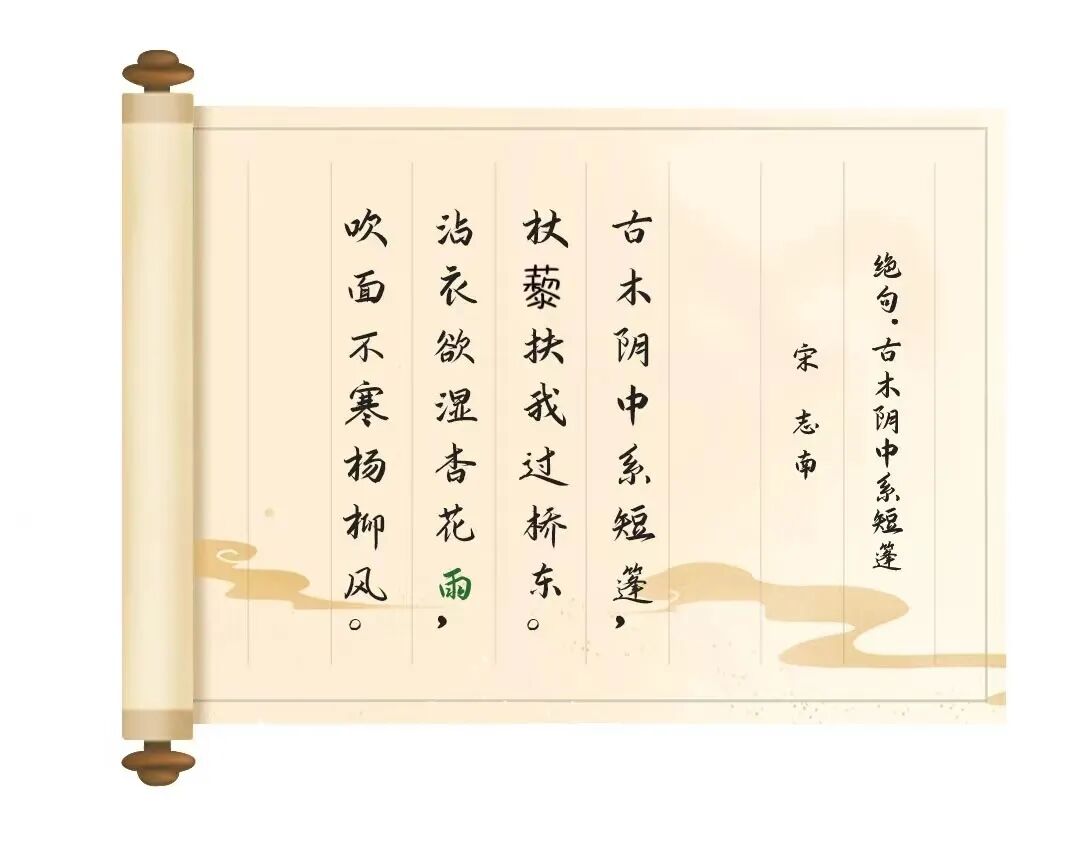 绝句·古木阴中系短篷
宋 志南
古木阴中系短篷，
杖藜扶我过桥东。
沾衣欲湿杏花雨，
吹面不寒杨柳风。